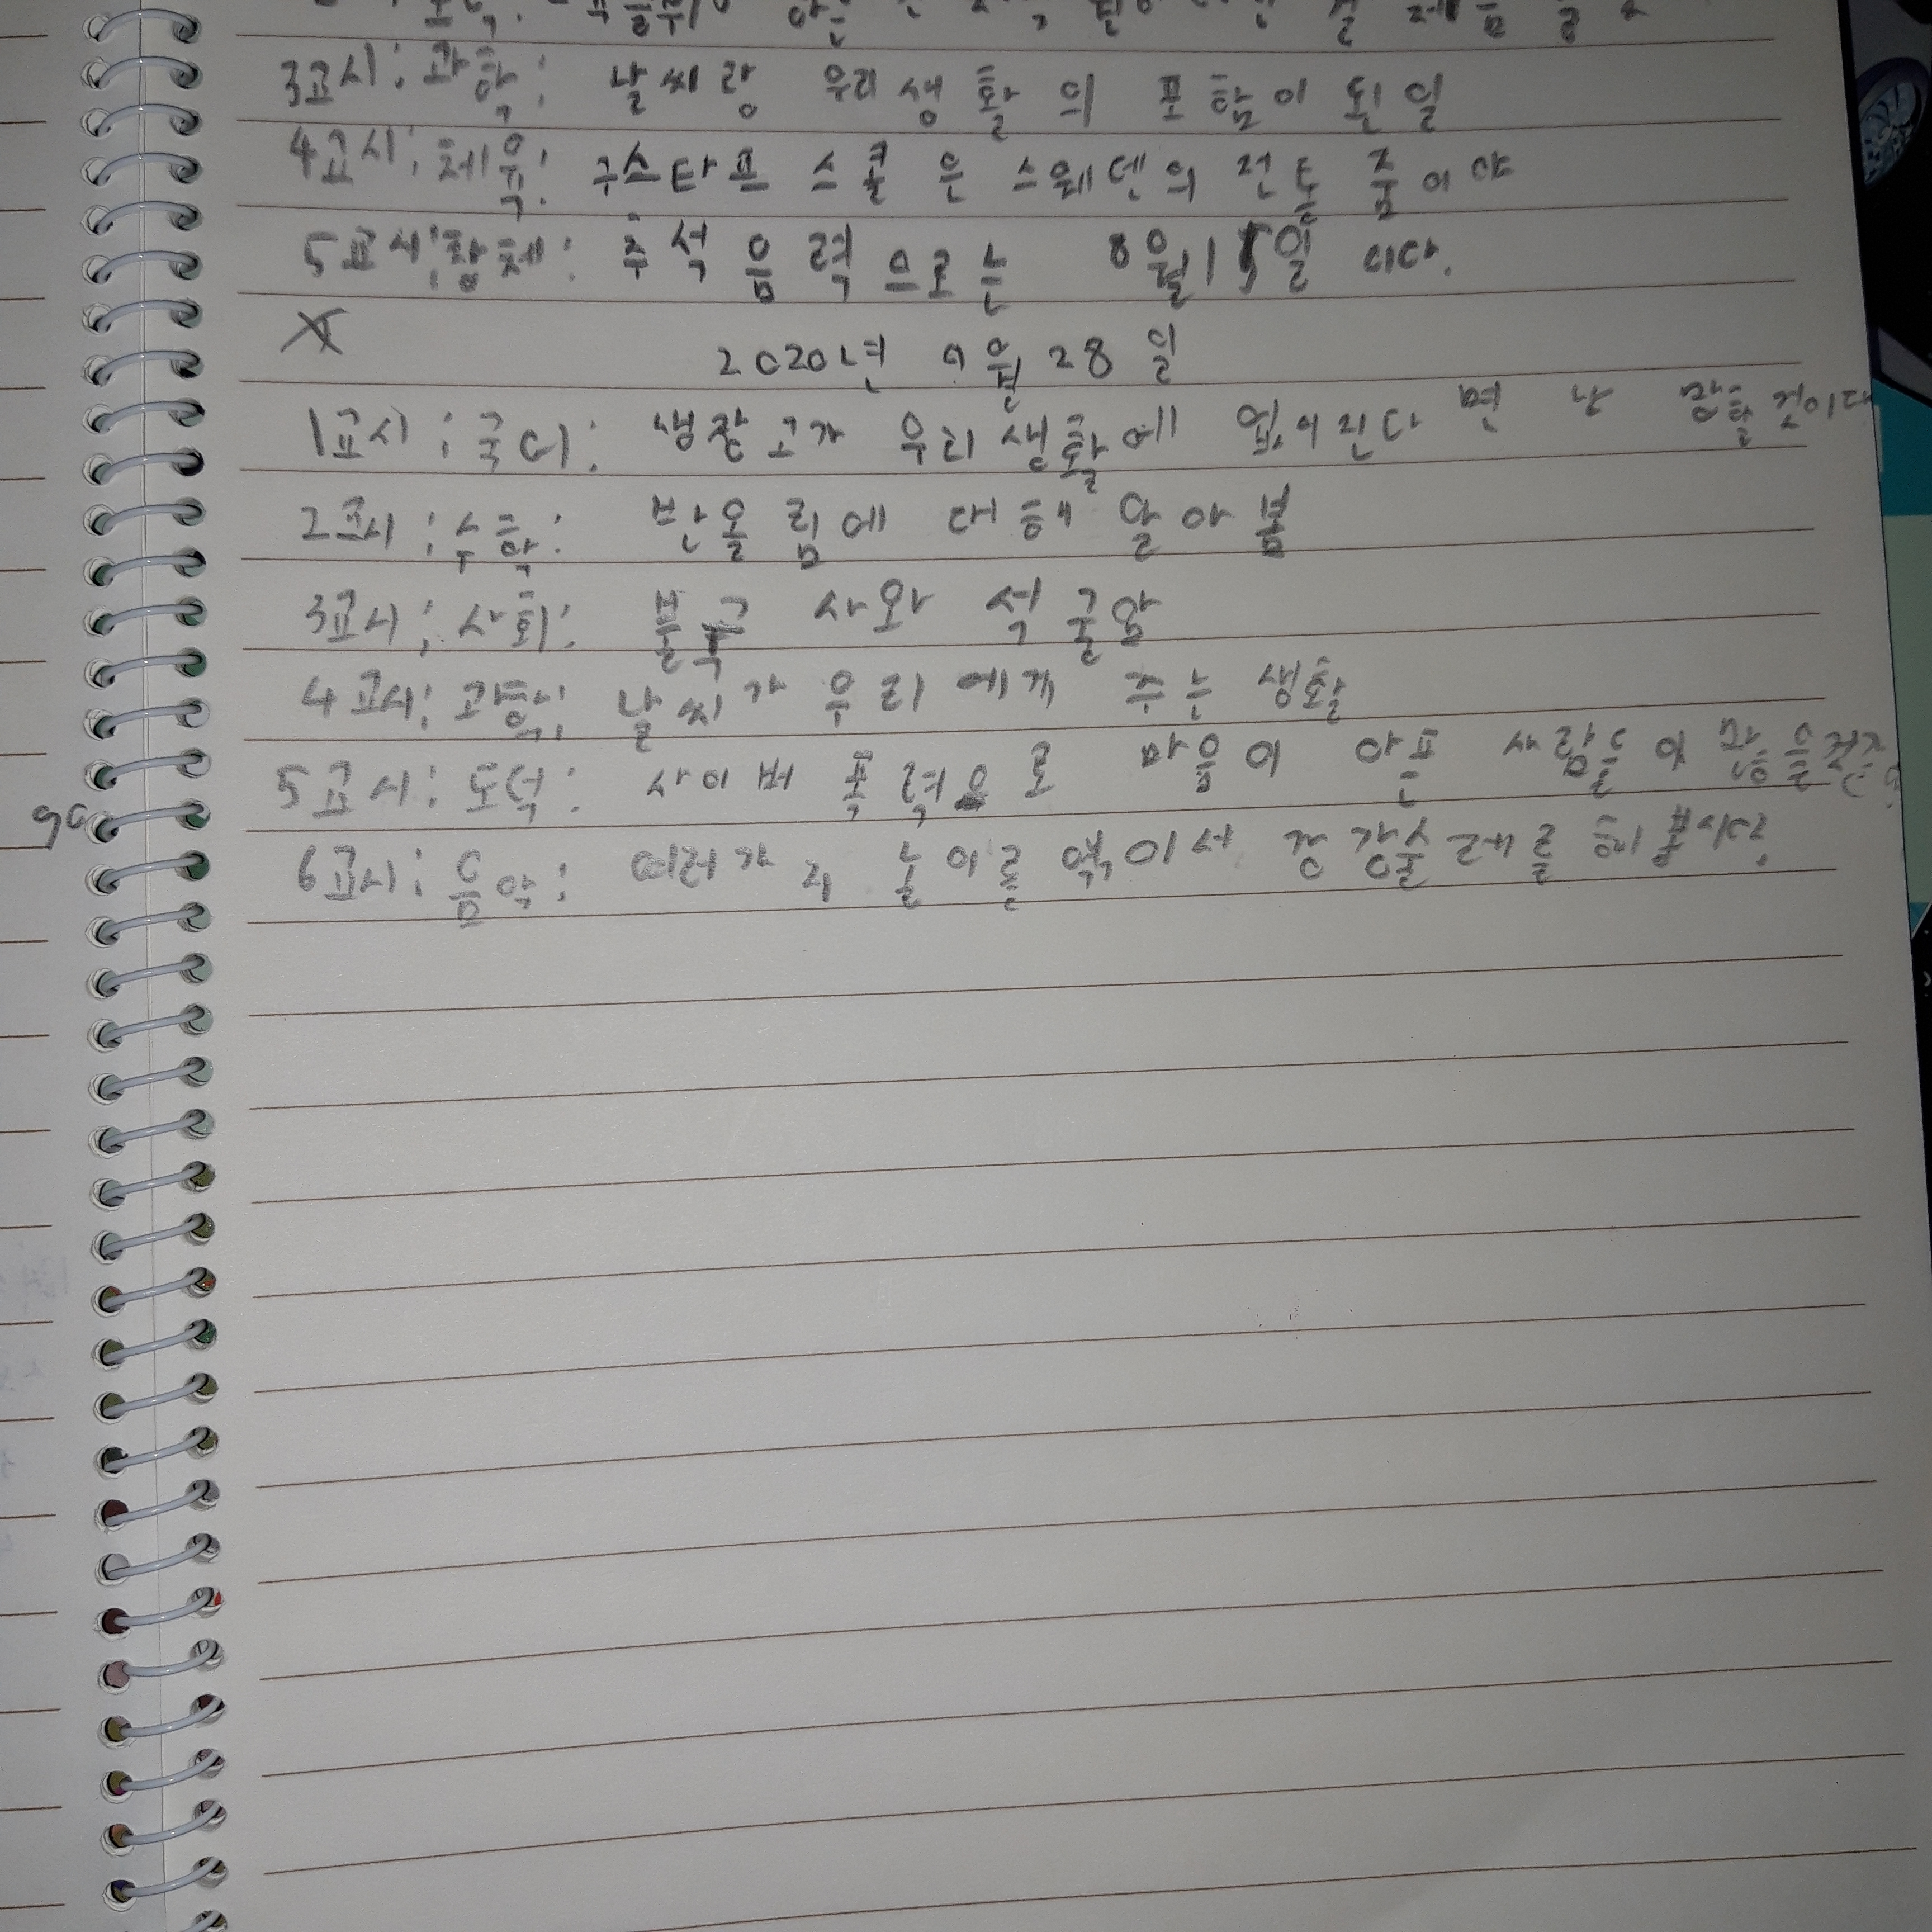 3교시: 과학: 날씨랑 우리 생활의 포함이 된일
4교시: 체육: 구스타프 스콜은 스웨덴의 전통 춤이야
5교시: 창체: 추석 음력으로는 8월15일 이다.
2020년 9월 28일
1교시: 국어: 냉장고가 우리 생활에 없어진다면 난 망할 것이다
2교시: 수학: 반올림에 대해 알아봄
3교시: 사회: 불국사와 석굴암
4교시: 과학: 날씨가 우리에게 주는 생활
5교시: 도덕: 사이버 폭력으로 마음이 아픈 사람들
6교시: 음악: 여러가지 놀이를 엮어서 강강술레를 해봅시다.